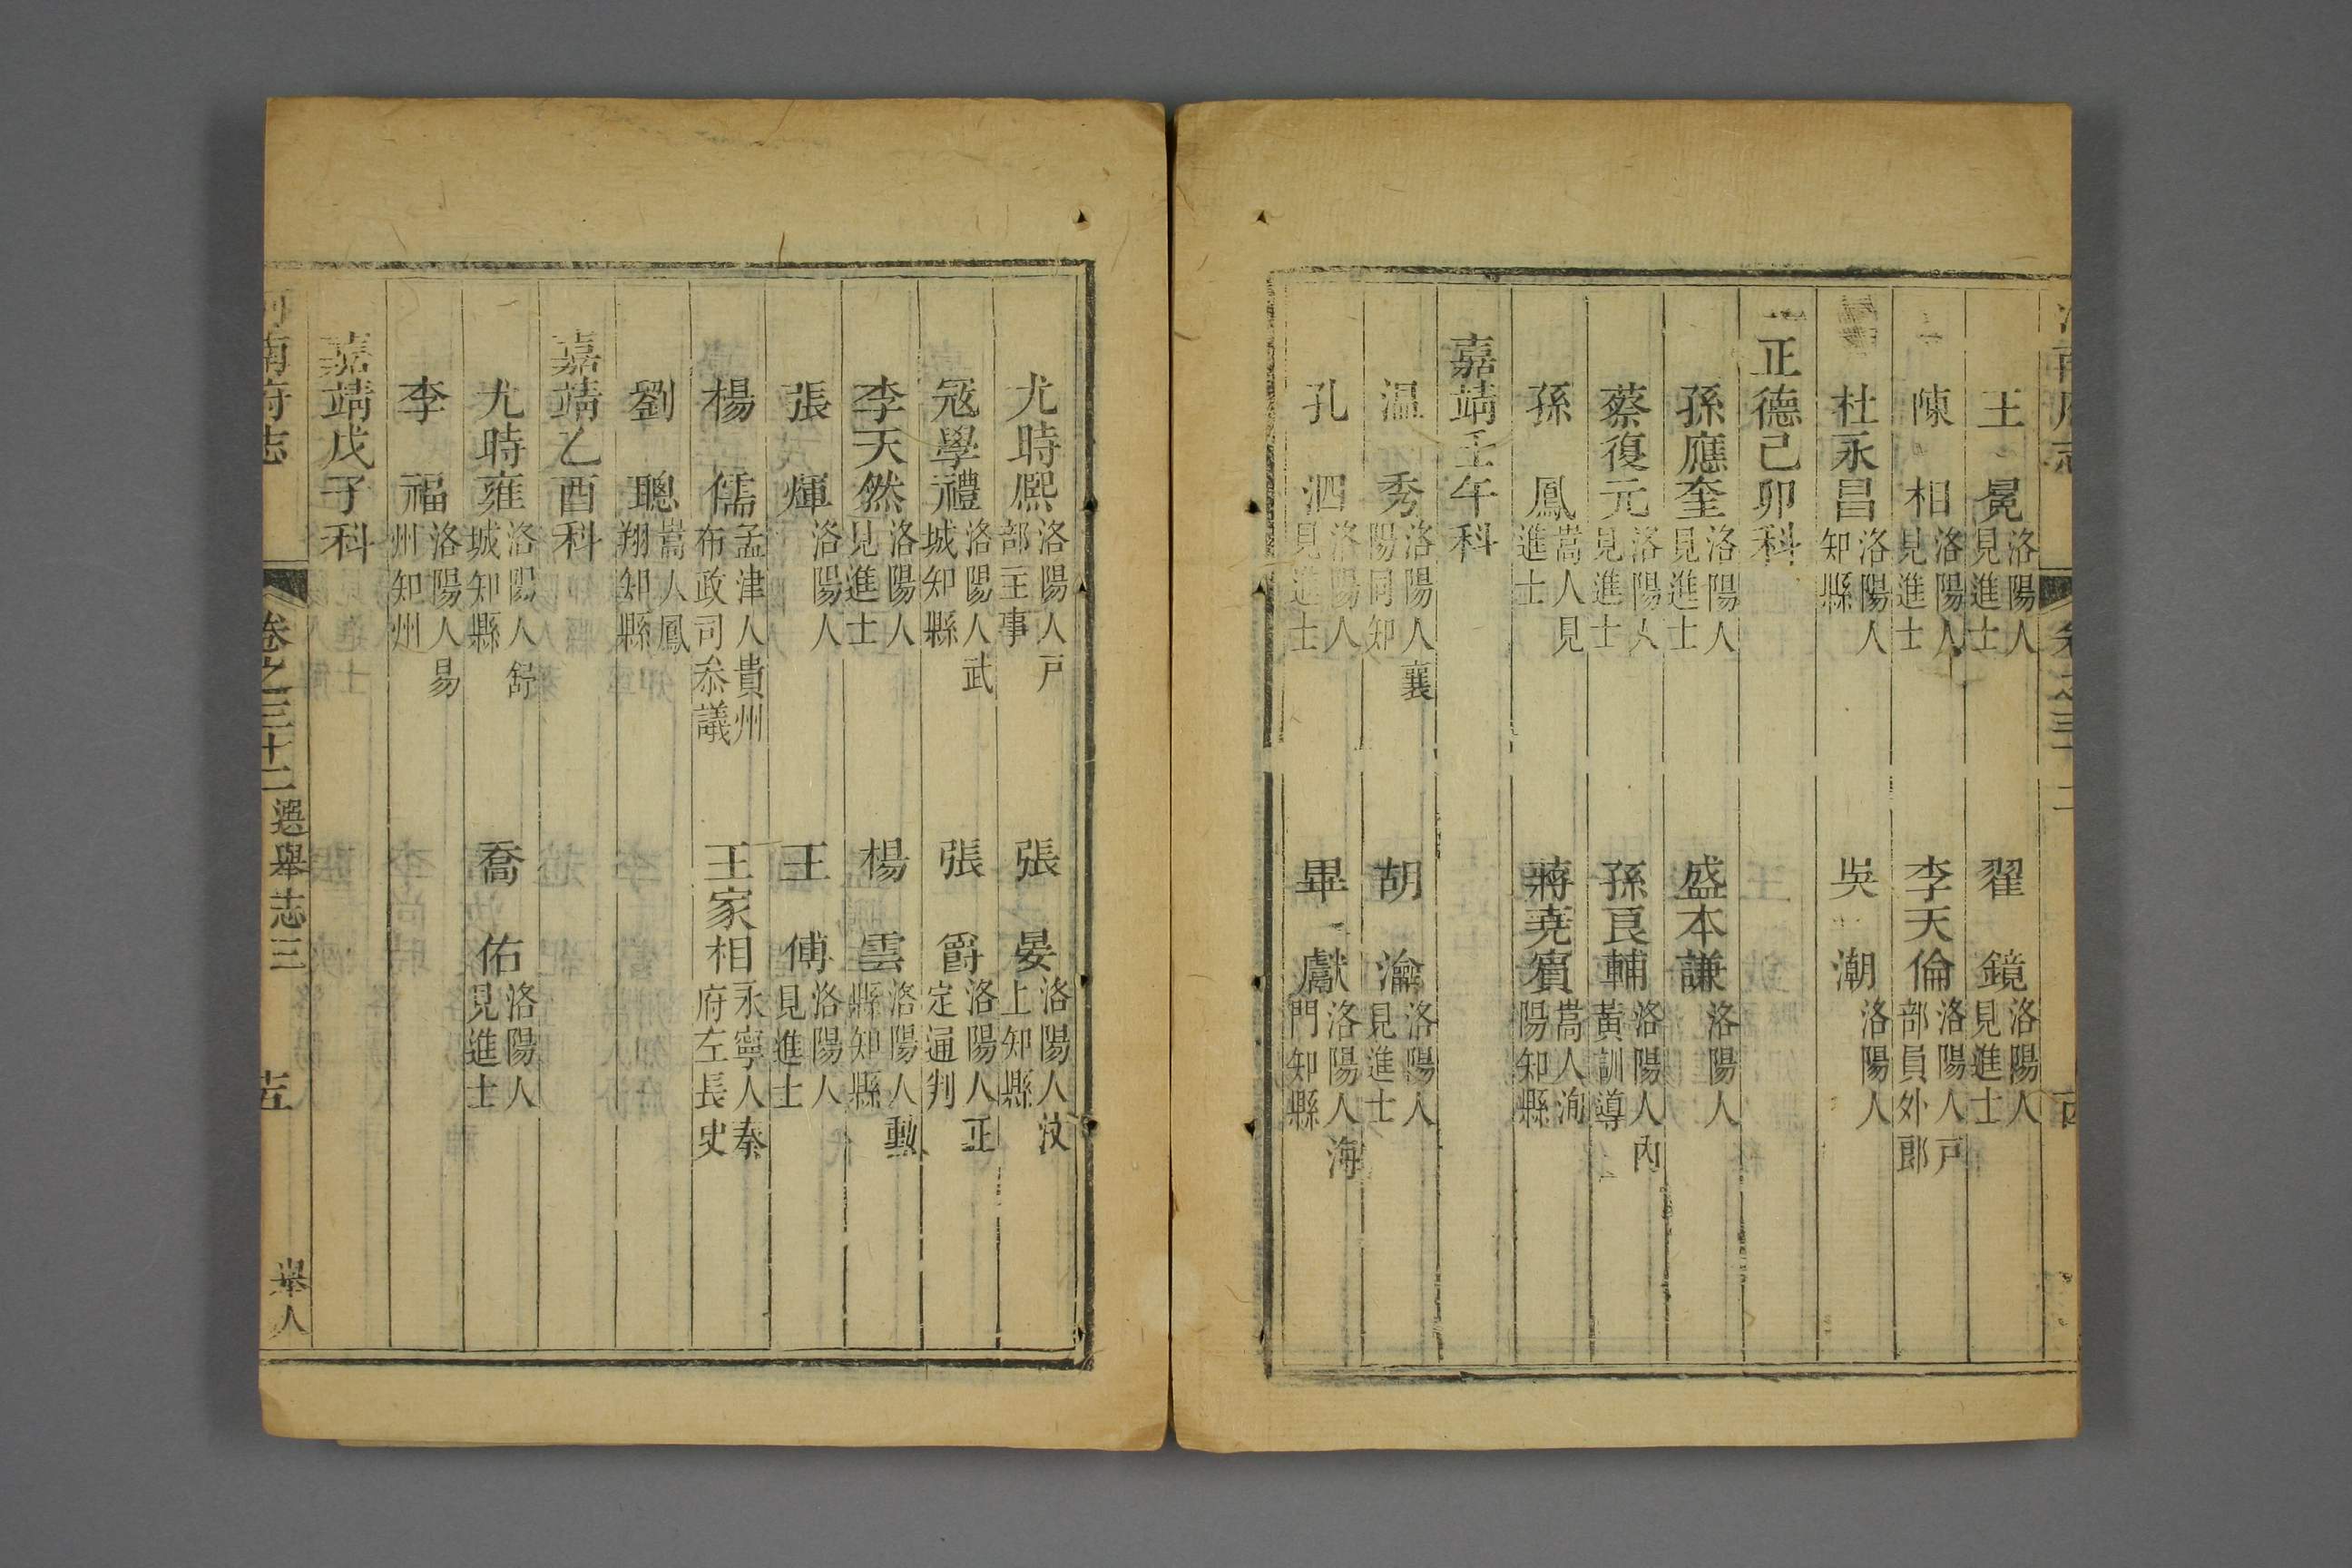 王冕洛陽人見進士 翟鏡洛陽人見進士
陳相洛陽人見進士 李天倫洛陽人戸部員外郎
杜永昌洛陽人知縣 吳潮洛陽人
正德己卯科
孫應奎洛陽人見進士 盛本謙洛陽人
蔡復元洛陽人見進士 孫良輔洛陽人內黃訓導
孫鳳嵩人見進士 蔣堯賓嵩人洵陽知縣
嘉靖壬午科
温秀洛陽人襄陽同知 胡瀹洛陽人見進士
孔泗洛陽人見進士 畢獻洛陽人海門知縣
尤時熈洛陽人戸部主事 張晏洛陽人汶上知縣
冦學禮洛陽人武城知縣 張爵洛陽人正定通判
李天然洛陽人見進士 楊雲洛陽人勳縣知縣
張煇洛陽人 王傅洛陽人見進士
楊儒孟津人貴州布政司叅議 王家相永寧人秦府左長史
劉聰嵩人鳳翔知縣
嘉靖乙酉科
尤時雍洛陽人舒城知縣 喬佑洛陽人見進士
李福洛陽人易州知州
嘉靖戊子科
河南府志 卷之三十二 選舉志三 五 舉人